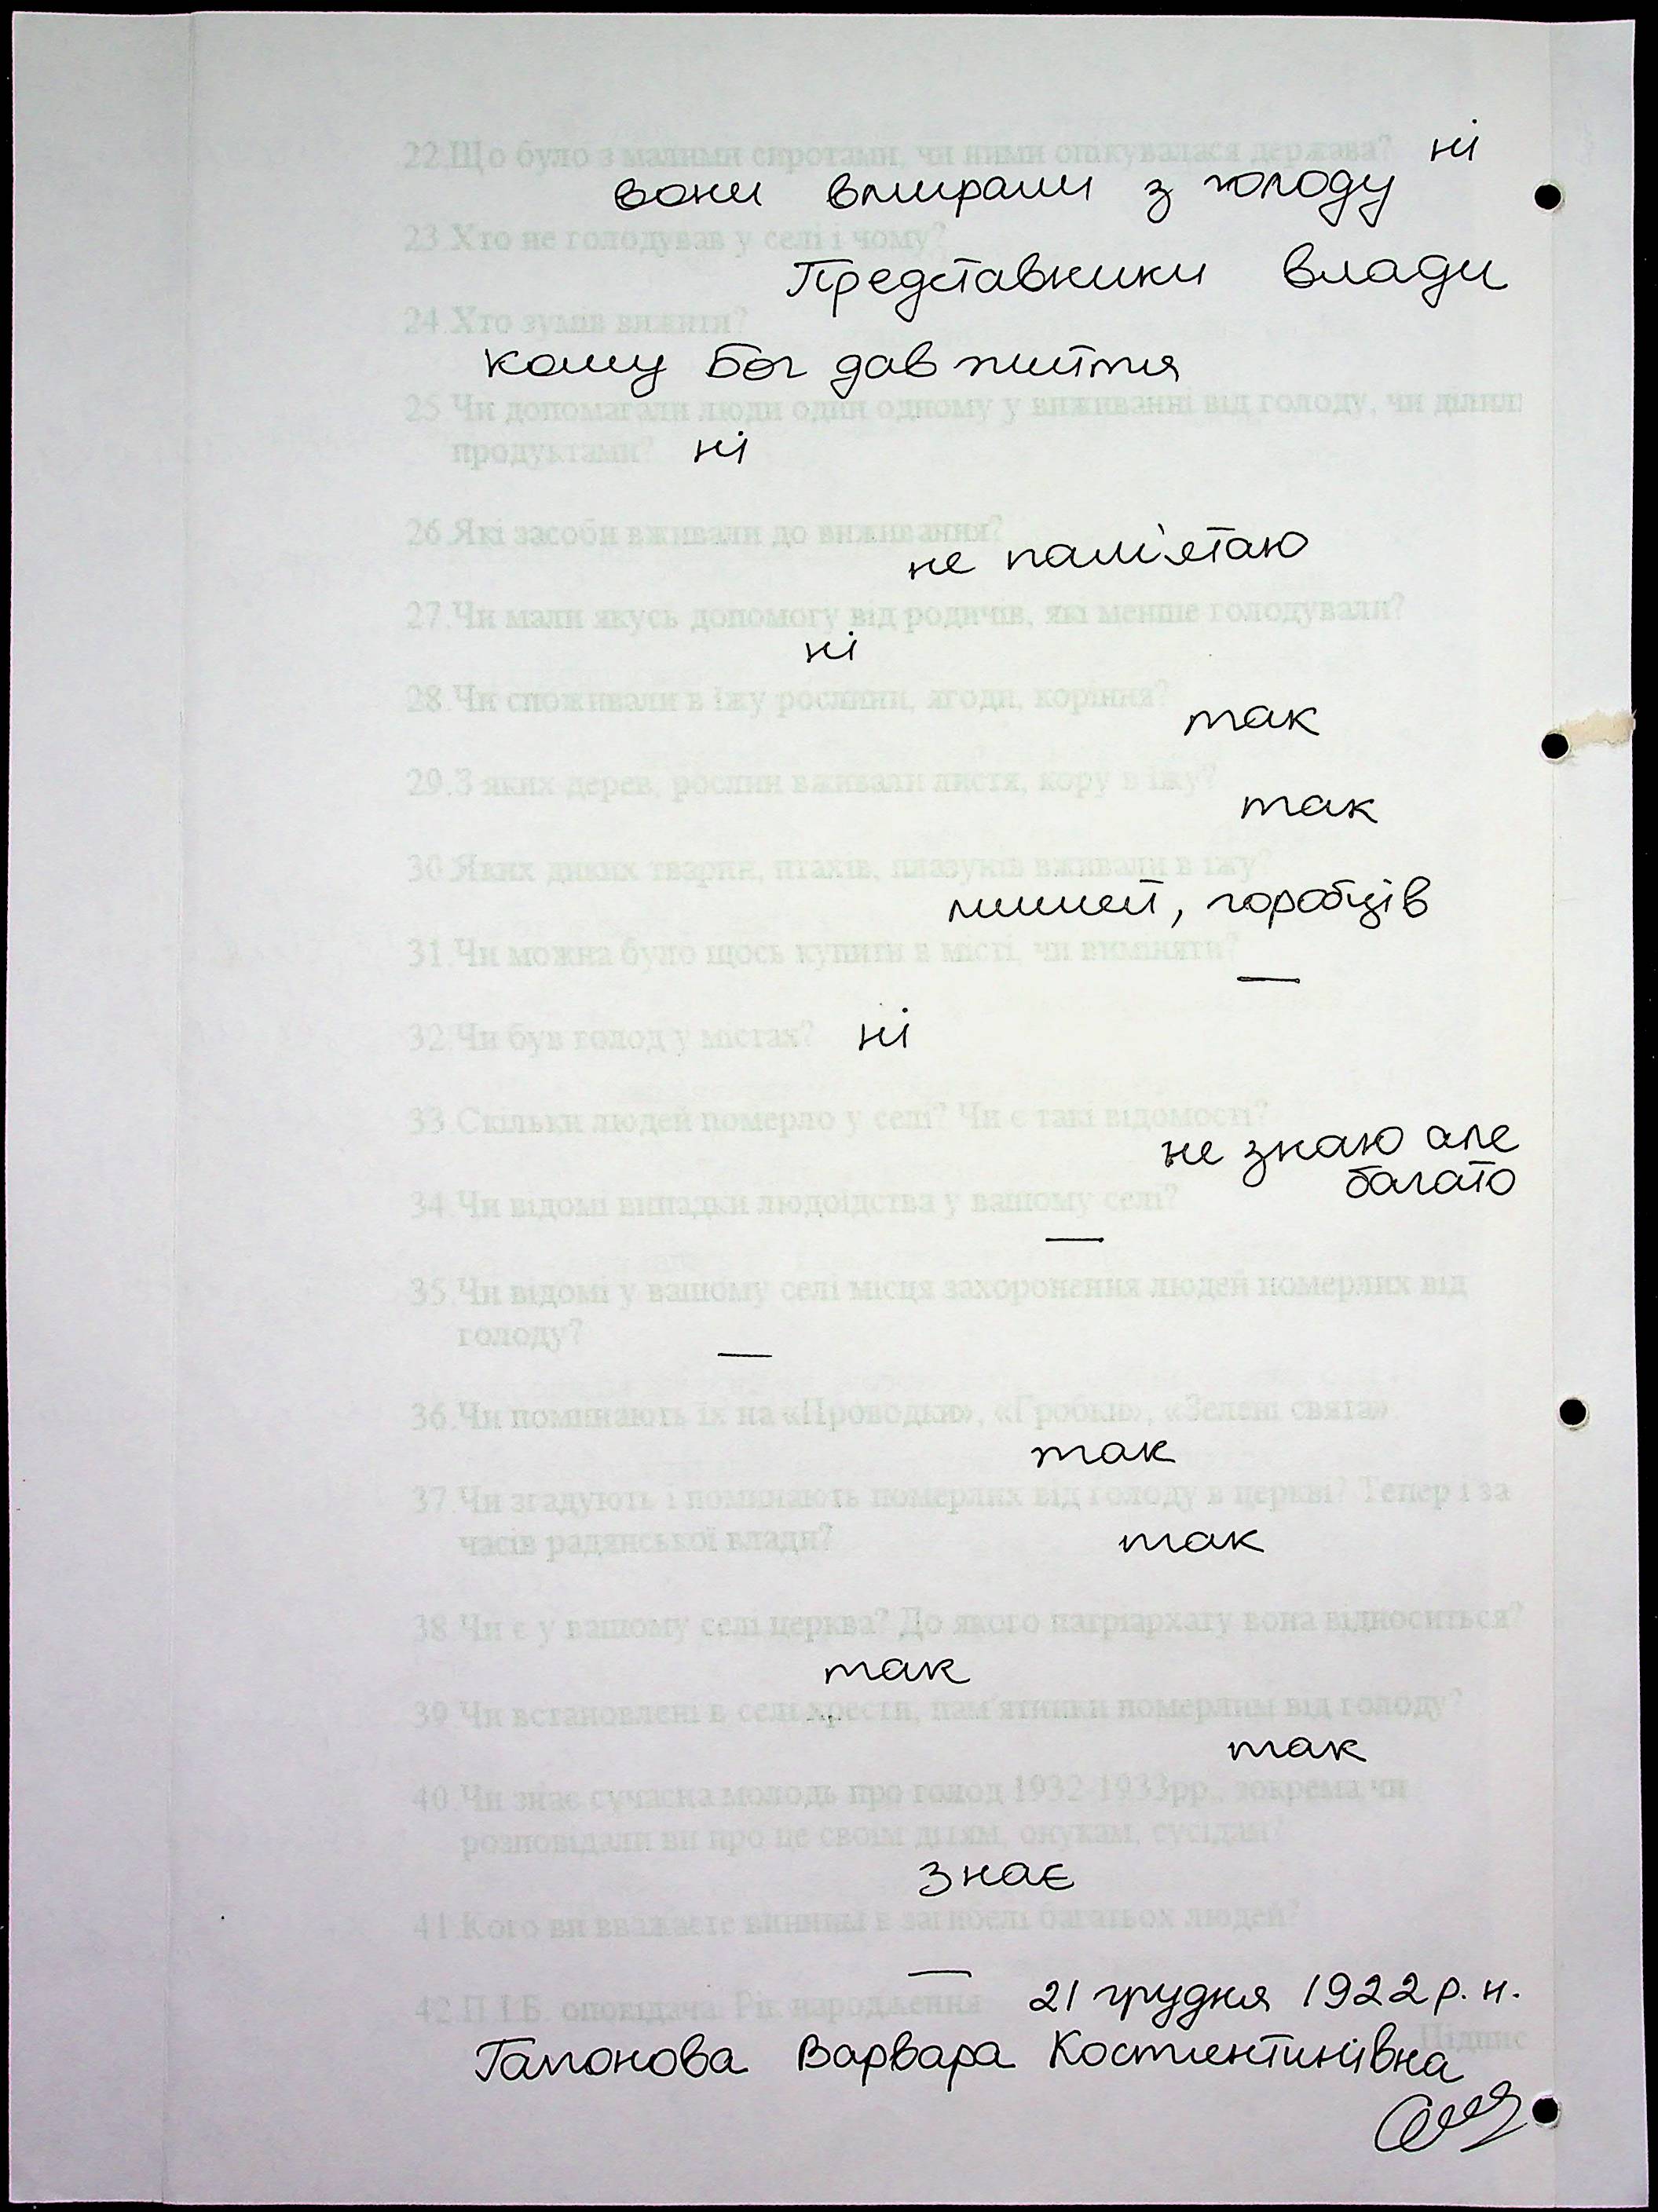 22.Що було з малими сиротами, чи ними опікувалася держава? ні
вони вмирали з голоду
23.Хто не голодував у селі і чому?
Представники влади
24.Хто зумів вижити?
кому Бог дав життя
25.Чи допомагали люди один одному у виживанні від голоду, чи ділил
продуктами? ні
26.Які засоби вживали до виживання?
не пам'ятаю
27.Чи мали якусь допомогу від родичів, які менше голодували?
ні
28.Чи споживали в їжу рослини, ягоди, коріння?
так
29.З яких дерев, рослин вживали листя, кору в їжу?
так
30.Яких диких тварин, птахів, плазунів вживали в їжу?
мишей, горобців
31.Чи можна було щось купити в місті, чи виміняти?
—
32.Чи був голод у містах? ні
33.Скільки людей померло у селі? Чи є такі відомості?
не знаю але
багато
34.Чи відомі випадки людоїдства у вашому селі?
—
35.Чи відомі у вашому селі місця захоронення людей померлих від
голоду?
—
36.Чи поминають їх на «Проводки», «Гробки», «Зелені свята»
так
37.Чи згадують і поминають померлих від голоду в церкві? Тепер і за
часів радянської влади? так
38.Чи є у вашому селі церква? До якого патріархату вона відноситься?
так
39.Чи встановлені в селі хрести, пам'ятники померлим від голоду?
так
40.Чи знає сучасна молодь про голод 1932-1933рр., зокрема чи
розповідали ви про це своїм дітям, онукам, сусідам?
знає
41.Кого ви вважаєте винним в загибелі багатьох людей?
—
42.П.І.Б. оповідача. Рік народження 21 грудня 1922 р. н.
Підпис
Гапонова Варвара Костентинівна